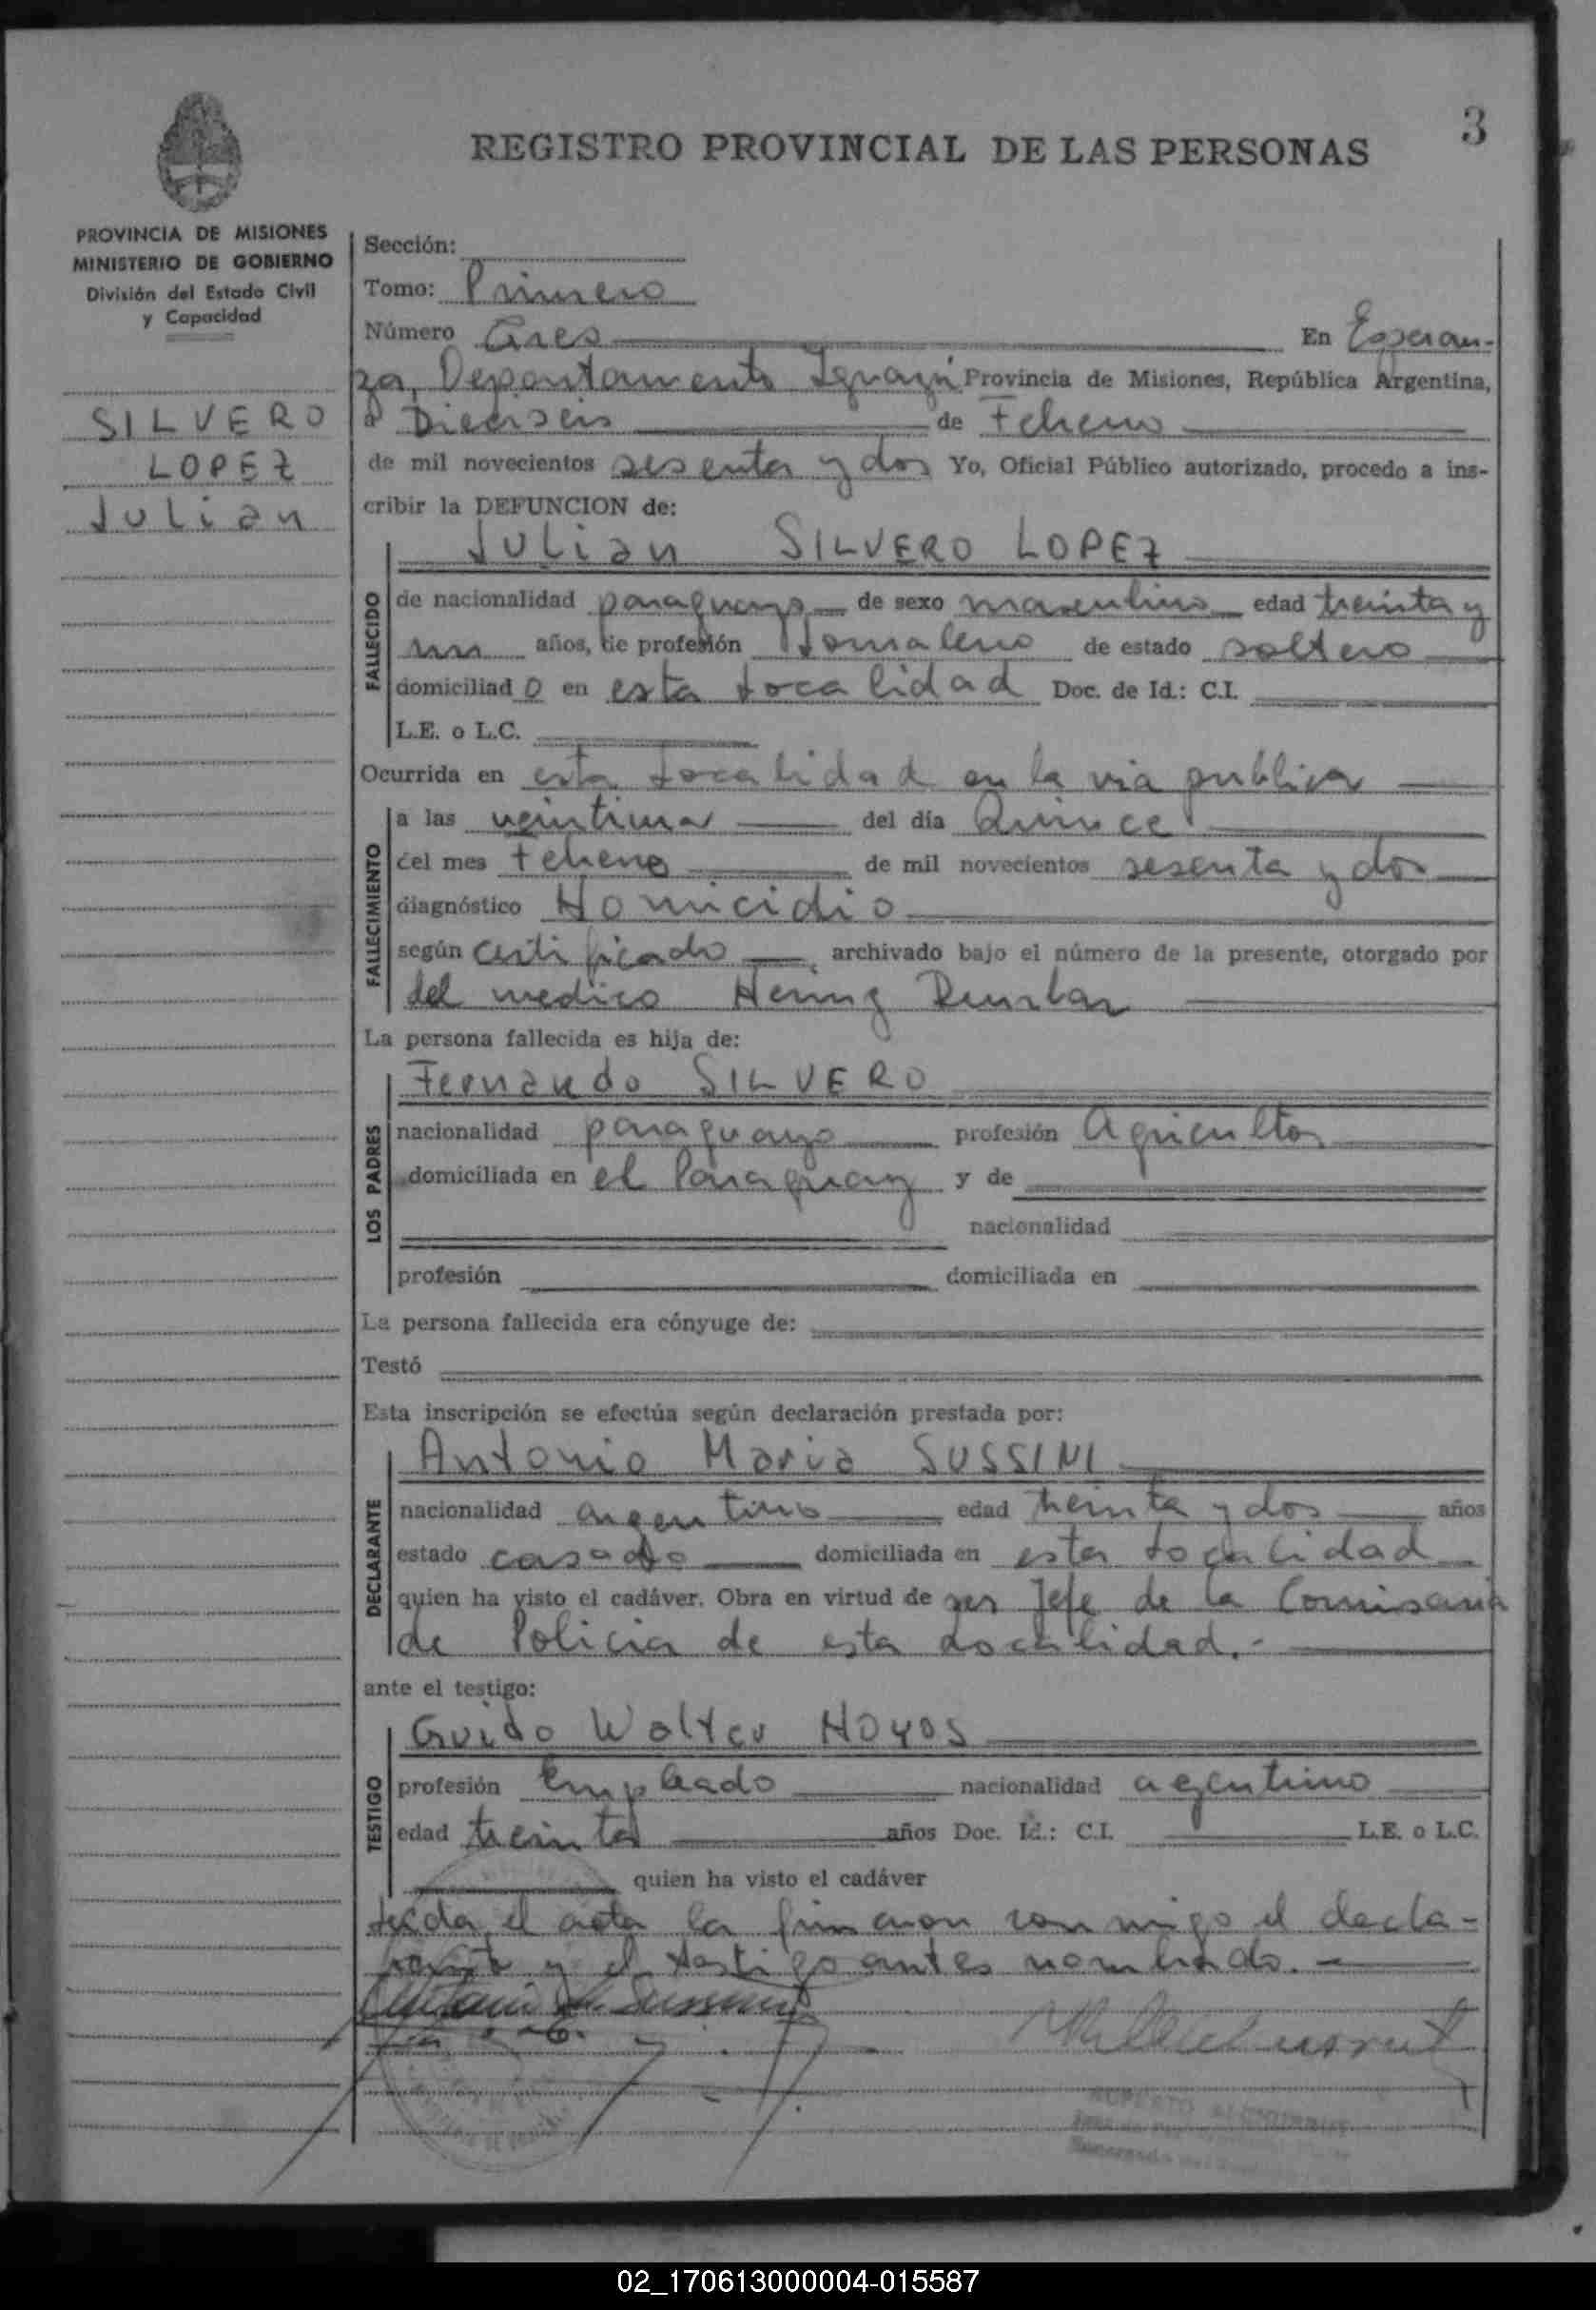 3
REGISTRO PROVINCIAL DE LAS PERSONAS
PROVINCIA DE MISIONES
MINISTERIO DE GOBIERNO
División del Estado Civil
y Capacidad
SILVERO
LOPEZ
Julian
Sección:
Tomo: Primero
Número Tres En Esperan-
za, Departamento Iguazú Provincia de Misiones, República Argentina,
a Dieciseis de Febrero
de mil novecientos sesenta y dos Yo, Oficial Público autorizado, procedo a ins-
cribir la DEFUNCION de:
Julian SILVERO LOPEZ
FALLECIDO
de nacionalidad paraguayo de sexo masculino edad treinta y
un años, de profesión Jornalero de estado soltero
domiciliado en esta Localidad Doc. de Id.: C.I.
L.E. o L.C.
Ocurrida en esta Localidad en la via publica
FALLECIMIENTO
a las veintiuna del día Quince
del mes Febrero de mil novecientos sesenta y dos
diagnóstico Homicidio
según certificado archivado bajo el número de la presente, otorgado por
del medico Henng
La persona fallecida es hija de:
Fernando SILVERO
LOS PADRES
nacionalidad paraguayo profesión Agricultor
domiciliada en el Paraguay y de
nacionalidad
profesión domiciliada en
La persona fallecida era cónyuge de:
Testó
Esta inscripción se efectúa según declaración prestada por:
Antonio Maria SUSSINI
DECLARANTE
nacionalidad argentino edad treinta y dos años
estado casado domiciliada en esta Localidad
quien ha visto el cadáver. Obra en virtud de ser Jefe de la Comisaria
de Policia de esta Localidad.-
ante el testigo:
Guido Walter HOYOS
TESTIGO
profesión Empleado nacionalidad agentino
edad treinta años Doc. Id.: C.I. L.E. o L.C.
quien ha visto el cadáver
Leida el acta la firmaron conmigo el decla-
rante y el testigo antes nombrado.-
02_170613000004-015587